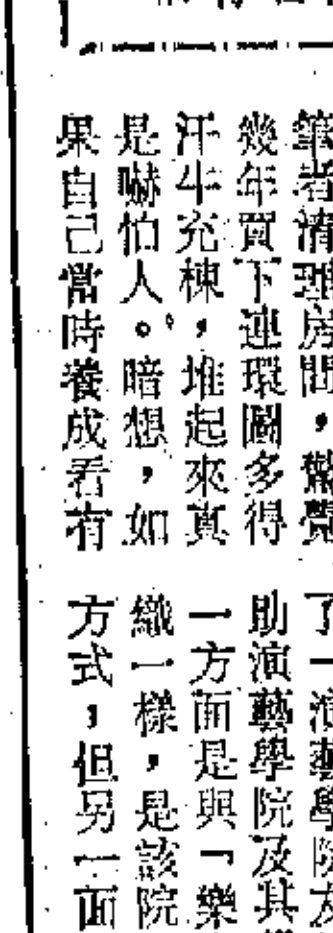 筆者清理房間，驚覺
幾年買下連環圖多得
汗牛充棟，堆起來真
是嚇怕人。暗想，如
果自己當時養成看有
了一演藝學院及
助演藝學院及其
一方面是與「樂
織一樣，是該院
方式，但另一面